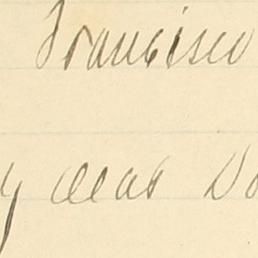 Francisco
y dear Do